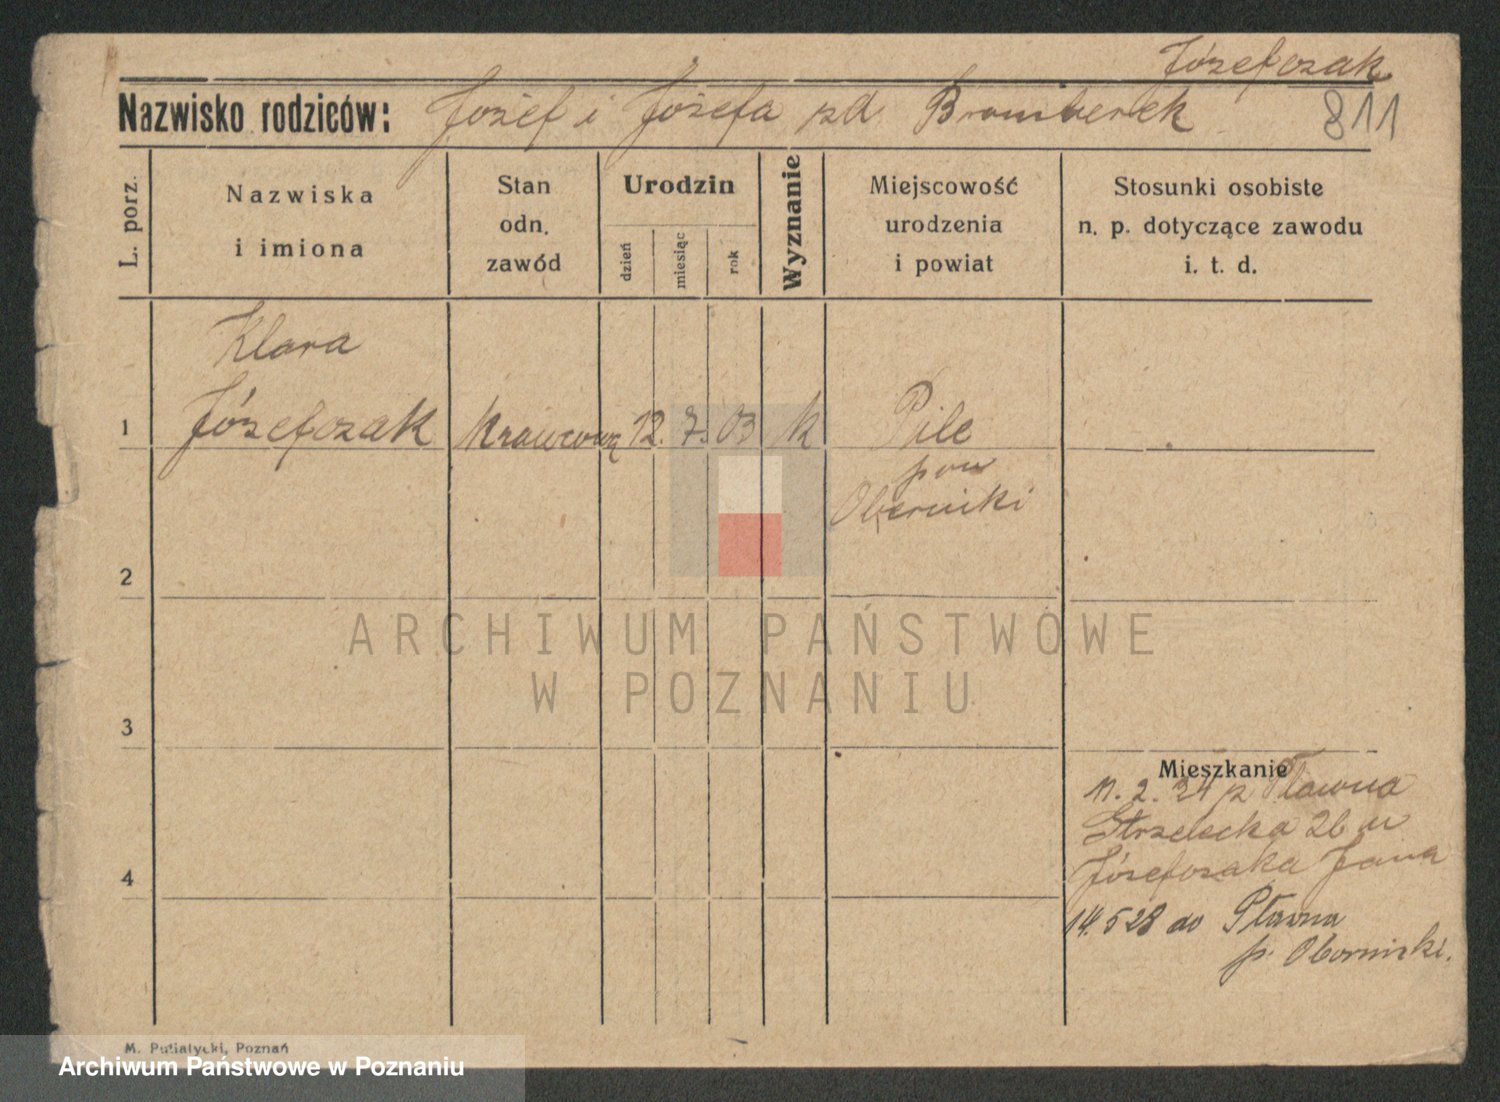 Józefczak
Nazwisko rodziców: Józef i Józefa zd. Bromberek 811
L. porz.
Nazwiska
i imiona
Stan
odn.
zawód
Urodzin
dzień
miesiąc
rok
Wyznanie
Miejscowość
urodzenia
i powiat
Stosunki osobiste
n. p. dotyczące zawodu
i. t. d.
Klara
1 Józefczak Krawcową 12. 7. 03 k Pile
pow
Oberniki
2
3
4
Mieszkanie
11. 2. 24 z Pławna
Strzelecka 26 u
Józefczaka Jana
14. 5 28 do Pławna
p. Oborniki.
M. Putiatycki, Poznań
ARCHIWUM PAŃSTWOWE
W POZNANIU
Archiwum Państwowe w Poznaniu